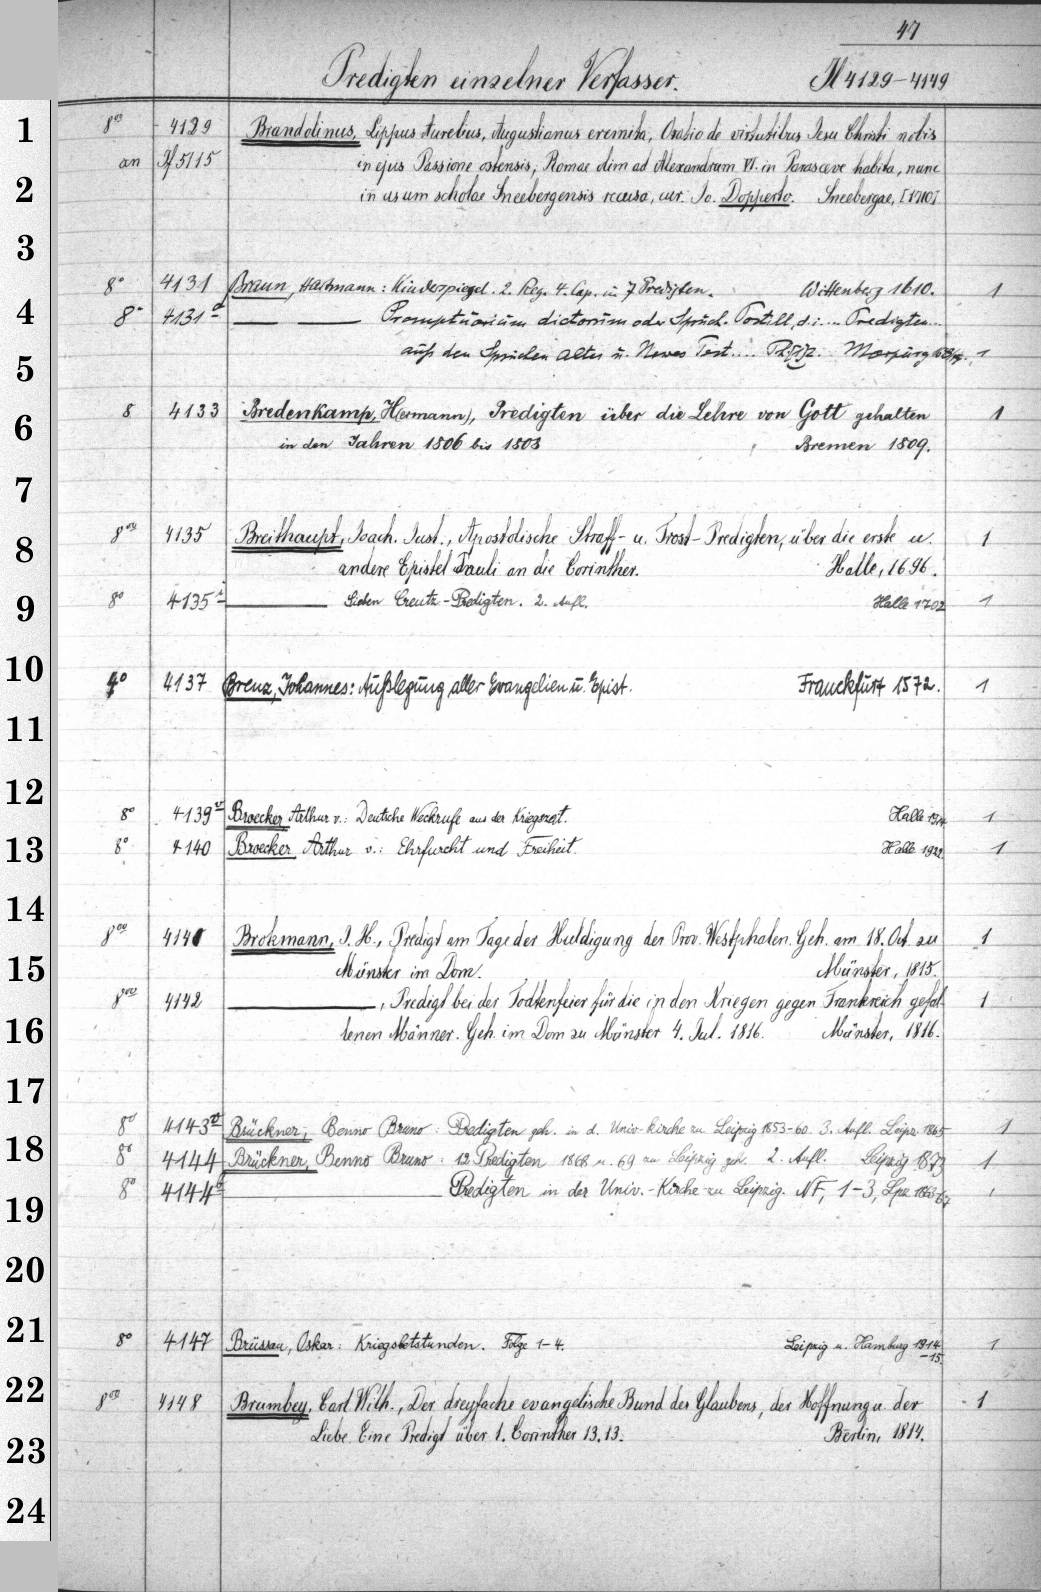 47
Predigten einzelner Verfasser. Il 4129–4149
1 8° 4129 Brandolinus, Lippus Aurelius, Augustianus eremita, Oratio de virtutibus Iesu Christi nobis
an If 5115 in ejus Passione ostensis, Romae dim ad Alexandrum VI. in Parasceve habita, nunc
2 in usum scholae Sneebergensis recusa, cur. Io. Dopperto. Sneebergae, [1710]
3
8° 4131 Braun, Hartmann: Kinderspiegel. 2. Reg. 4. Cap. in 7 Predigten. Wittenberg 1610. 1
4 8° 4131 a Promptuarium dictorum oder Spruch-Postill, d. i.... Predigten...
5 auß den Sprüchen altes u. Newes Test.... Marpurg 1
6 8 4133 Bredenkamp, Hermann), Predigten über die Lehre von Gott gehalten 1
in den Jahren 1806 bis 1803 Bremen 1809.
7
8 8° 4135 Breithaupt, Ioach. Iust., Apostolische Straff- u. Trost-Predigten, über die erste u. 1
andere Epistel Pauli an die Corinther. Halle, 1696.
9 8° 4135 Sieben Creutz-Predigten. 2. Aufl. Halle 1702 1
10 4° 4137 Brenz, Johannes: Außlegung aller Evangelien u. Epist. Franckfurt 1572. 1
11
12
8° 4139 Broecker Arthur v.: Deutsche Weckrufe aus der Kriegszeit. Halle 1914 1
13 8° 4140 Broecker, Arthur v.: Ehrfurcht und Freiheit. Halle 1922. 1
14
8° 4141 Brokmann, I. H., Predigt am Tage der Huldigung der Prov. Westphalen. Geh. am 18. Oct. zu 1
15 Münster im Dom. Münster, 1815.
8° 4142 , Predigt bei der Todtenfeier für die in den Kriegen gegen Frankreich gefal- 1
16 lenen Männer. Geh. im Dom zu Münster 4. Jul. 1816. Münster, 1816.
17
8° 4143 Brückner, Benno Bruno: Predigten geh. in d. Univ-kirche zu Leipzig 1853–60. 3. Aufl. Leipz. 1865 1
18 8° 4144 Brückner, Benno Bruno: 12 Predigten 1868 u. 69 zu Leipzig geh. 2. Aufl. Leipzig 1873 1
19 8° 4144 Predigten in der Univ.-Kirche zu Leipzig. NF, 1–3, Lpz 1863-67 1
20
21 8° 4147 Brüssau, Oskar: Kriegsbetstunden. Folge 1–4. Leipzig u. Hamburg 1914 1
–15.
22 8° 4148 Brumbey, Carl Wilh., Der dreyfache evangelische Bund des Glaubens, der Hoffnung u. der 1
23 Liebe. Eine Predigt über 1. Corinther 13,13. Berlin, 1814.
24